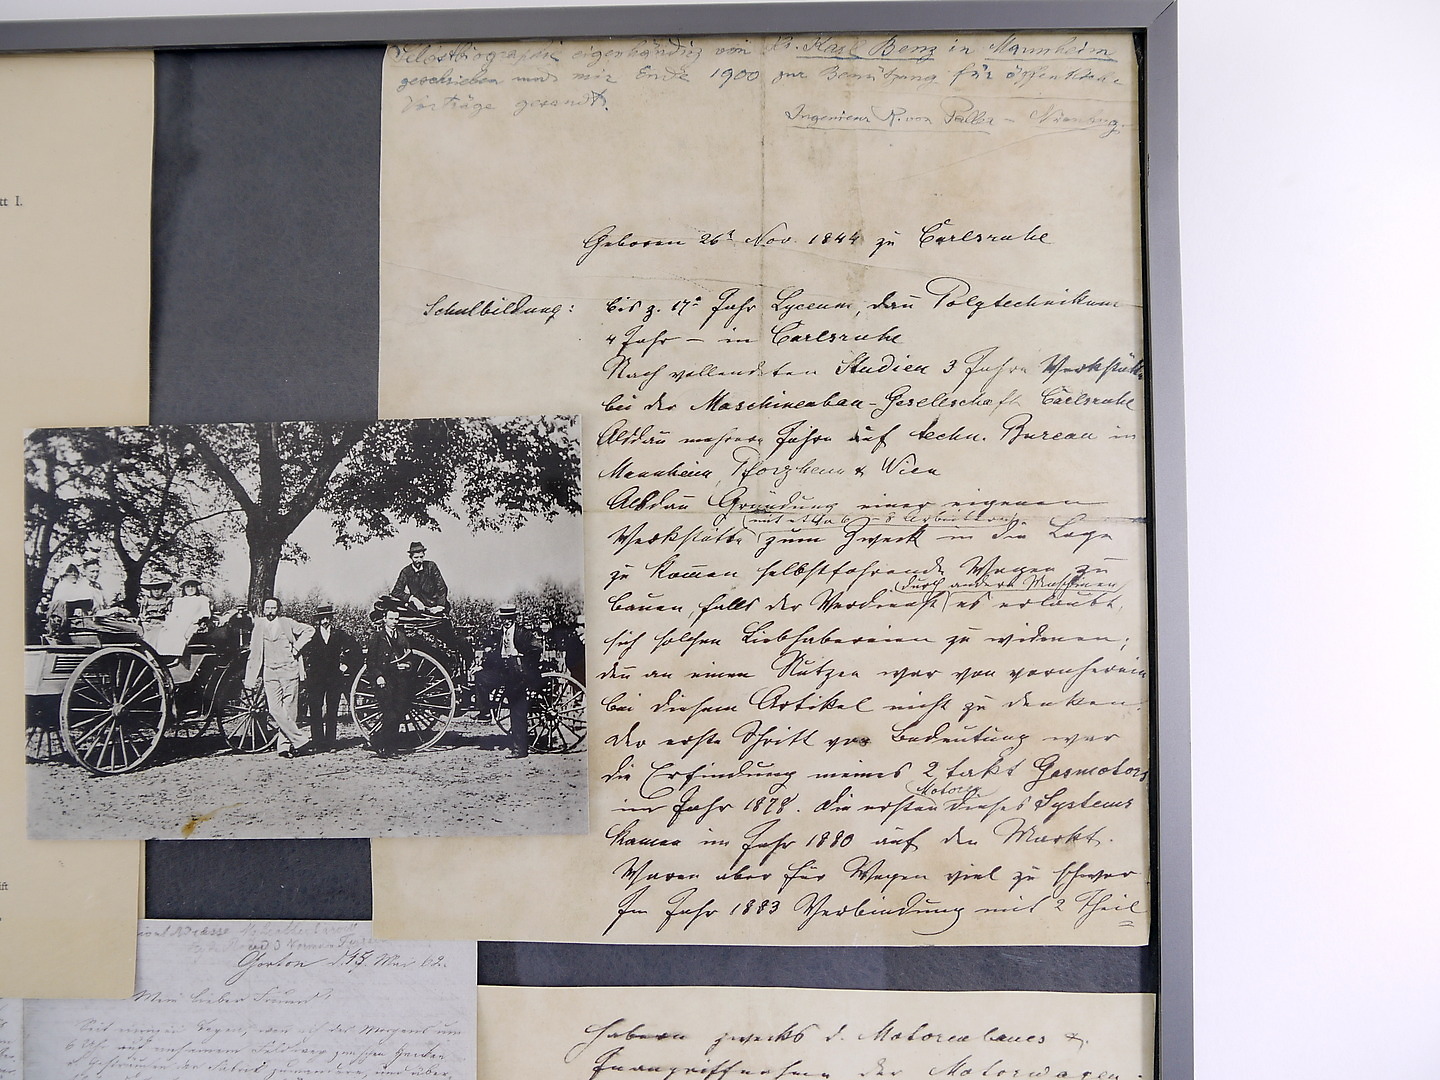 tt I.
Selbstbiographie eigenhändig von Dr. Karl Benz in Mannheim
geschrieben und mir Ende 1900 zur Benützung für öffentliche
Vorträge gesandt.
Ingenieur R. von Paller – Nürnberg.
Geboren 26t Nov. 1844 zu Carlsruhe
Schulbildung: bis z. 17n Jahr Lyceum, dan Polytechnikum
4 Jahr – in Carlsruhe
Nach vollendeten Studien 3 Jahre Werkstätte
bei der Maschinenbau-Gesellschaft Carlsruhe
Alsdan mehrere Jahre auf techn. Bureau in
Mannheim, Pforzheim & Wien
Alsdan Gründung einer eigenen
mit etwa 6–8 Arbeitern
Werkstätte zum Zweck in die Lage
zu komen selbstfahrende Wagen zu
durch andere Maschinen
bauen, falls der Verdienst es erlaubt,
sich solchen Liebhabereien zu widmen;
den an einen Nutzen war von vornherein
bei diesem Artikel nicht zu denken.
Der erste Schritt von Bedeutung war
die Erfindung meines 2 takt Gasmotors
im Jahr 1878. Die ersten Motoren dieses Systems
kamen im Jahr 1880 auf den Markt.
Waren aber für Wagen viel zu schwer
Im Jahr 1883 Verbindung mit 2 Theil
ift
Mai 62.
Mein lieber Freund!
6 Uhr auf
habern zwecks d. Motorenbaues &
Inangriffnahme der Motorwagen-